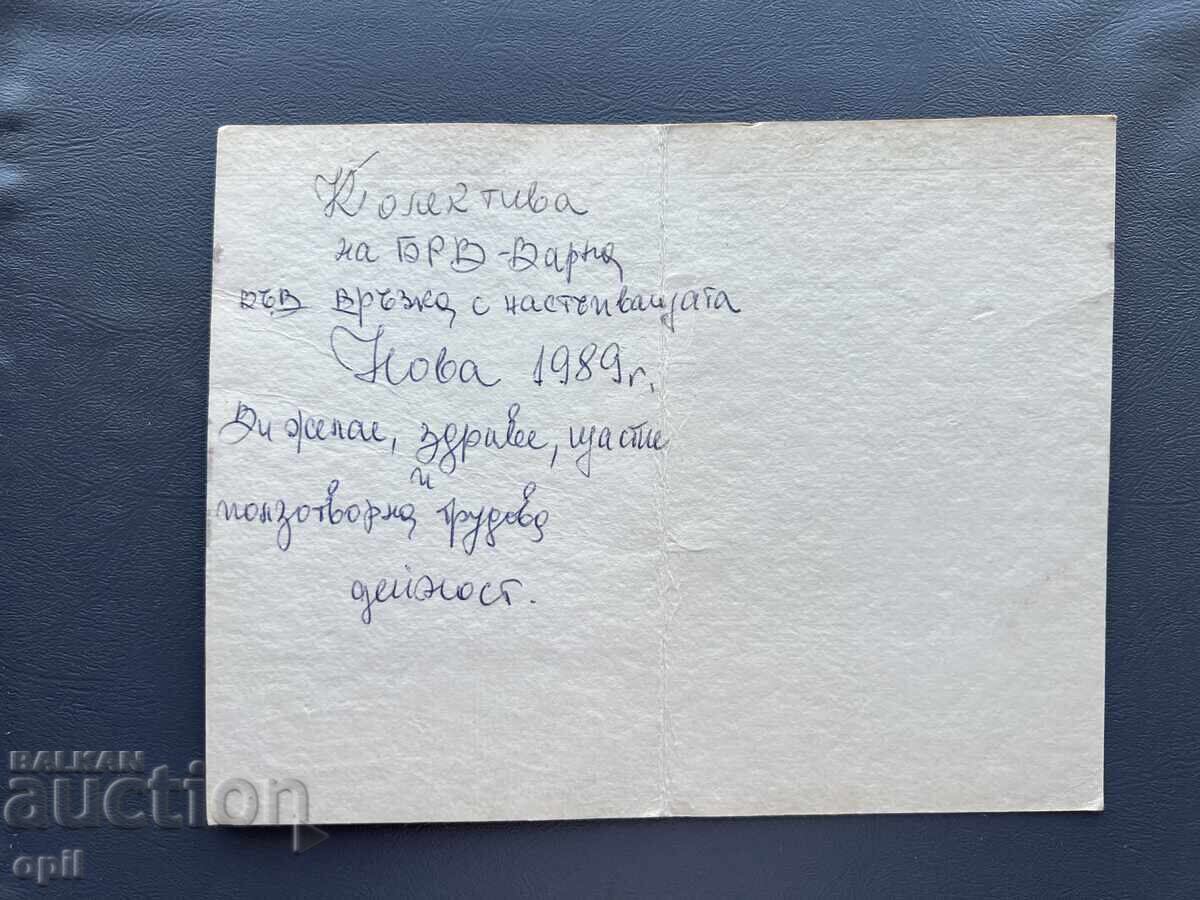 Колектива
на БРВ-Варна
във връзка с настъпващата
Нова 1989г.
Ви желае, здраве, щастие
и
ползотворна трудова
дейност.
BALKAN
auction
opil